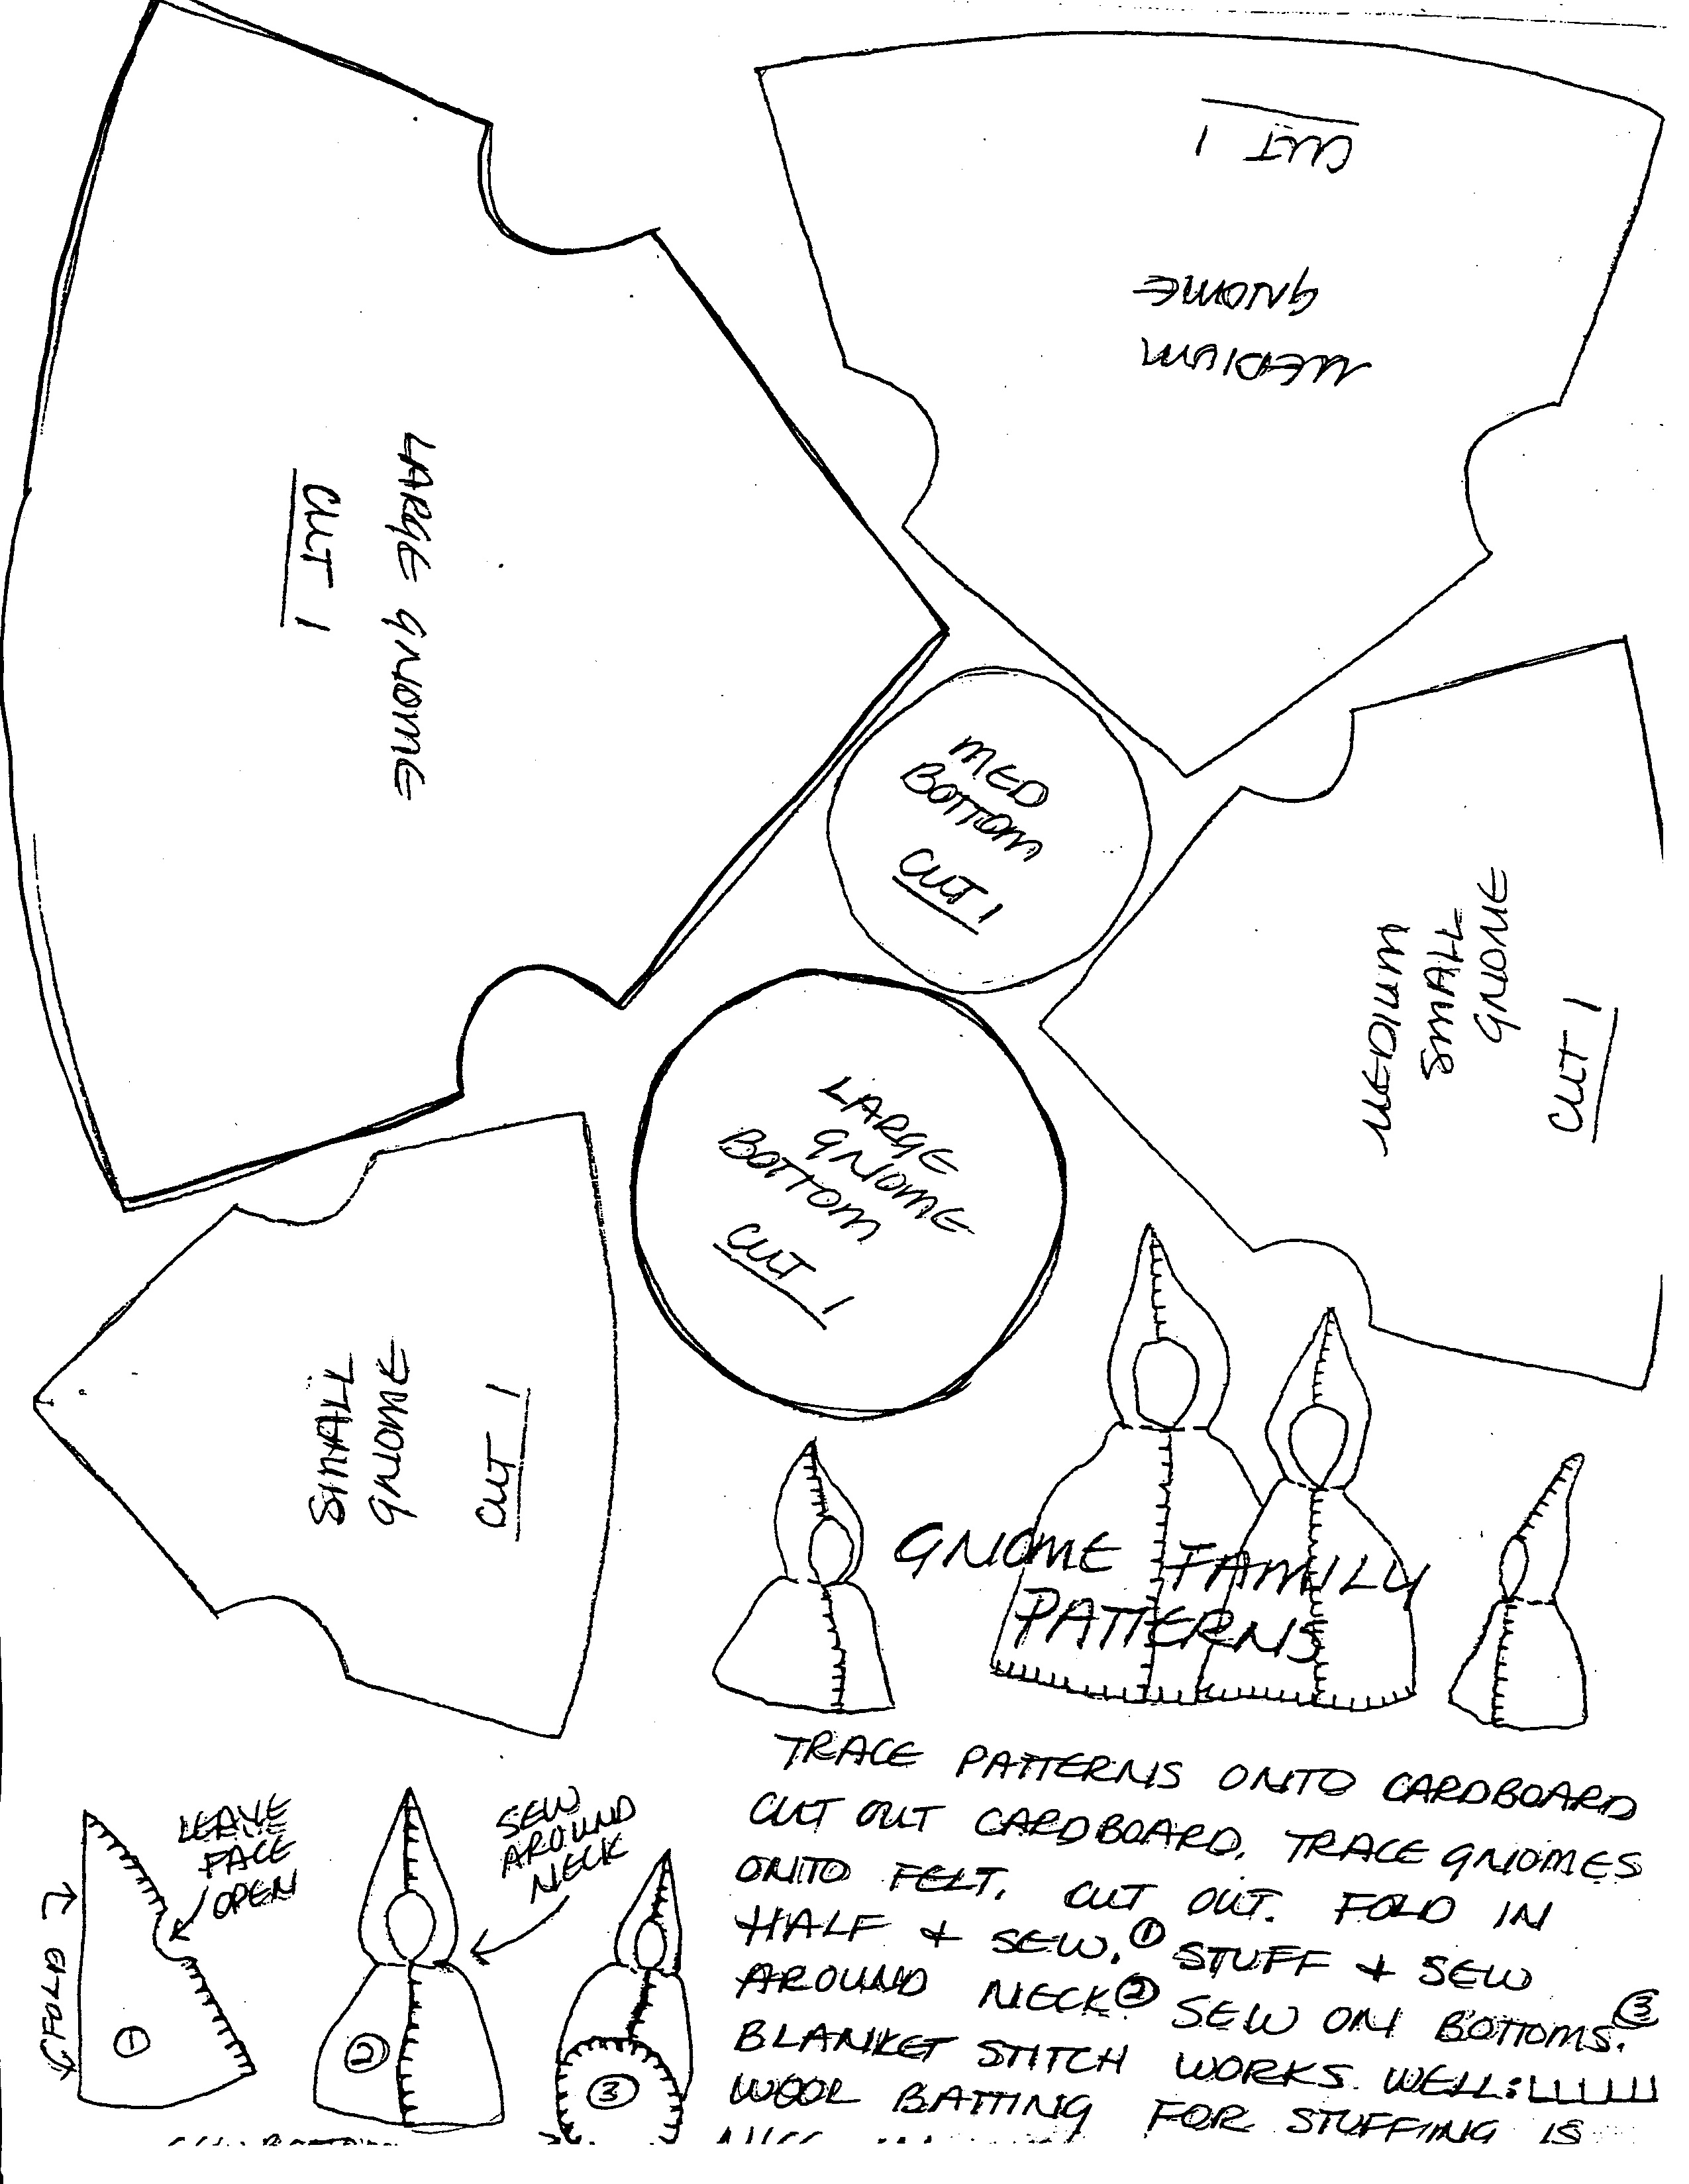 CUT 1
MEDIUM
GNOME
LARGE GNOME
CUT 1
MED
BOTTOM
CUT 1
MEDIUM
SMALL
GNOME
CUT 1
LARGE
GNOME
BOTTOM
CUT 1
SMALL
GNOME
CUT 1
GNOME FAMILY
PATTERNS
TRACE PATTERNS ONTO CARDBOARD
CUT OUT CARDBOARD. TRACE GNOMES
ONTO FELT. CUT OUT. FOLD IN
HALF + SEW. ① STUFF + SEW
AROUND NECK ② SEW ON BOTTOMS. ③
BLANKET STITCH WORKS WELL:
WOOL BATTING FOR STUFFING IS
LEAVE
FACE
OPEN
FOLD
①
SEW
AROUND
NECK
②
③